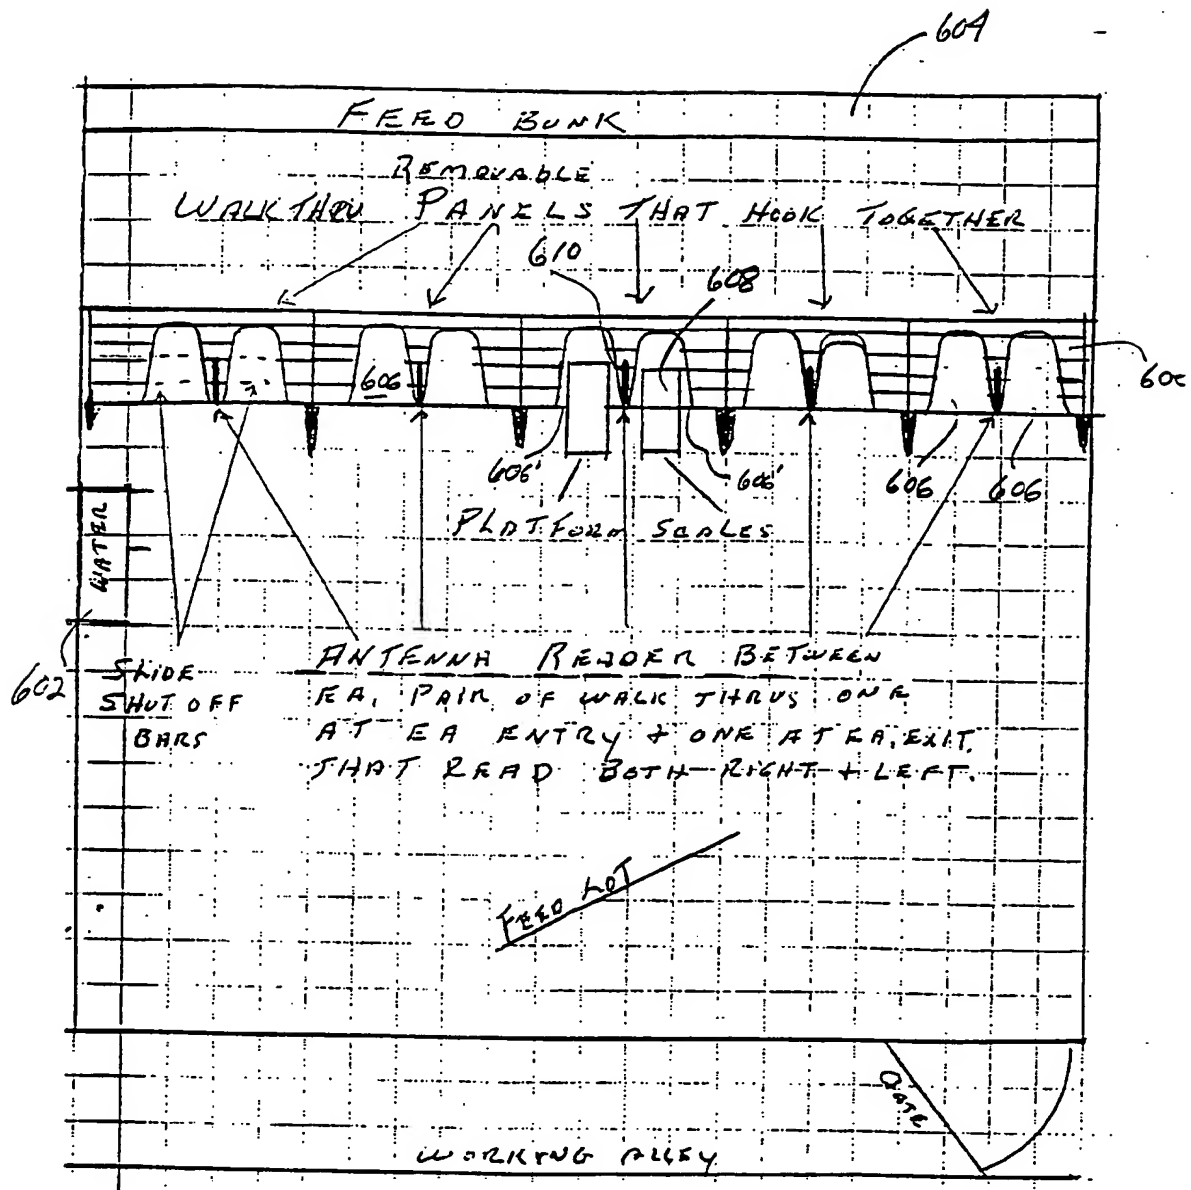 604
FEED BUNK
REMOVABLE
WALK THRU PANELS THAT HOOK TOGETHER
610
608
606
600
606'
606'
606
606
PLATFORM SCALES
WATER
602
SLIDE
SHUT OFF
BARS
ANTENNA READER BETWEEN
EA. PAIR OF WALK THRUS ONE
AT EA ENTRY + ONE AT EA. EXIT
THAT READ BOTH RIGHT + LEFT.
FEED LOT
GATE
WORKING ALLEY